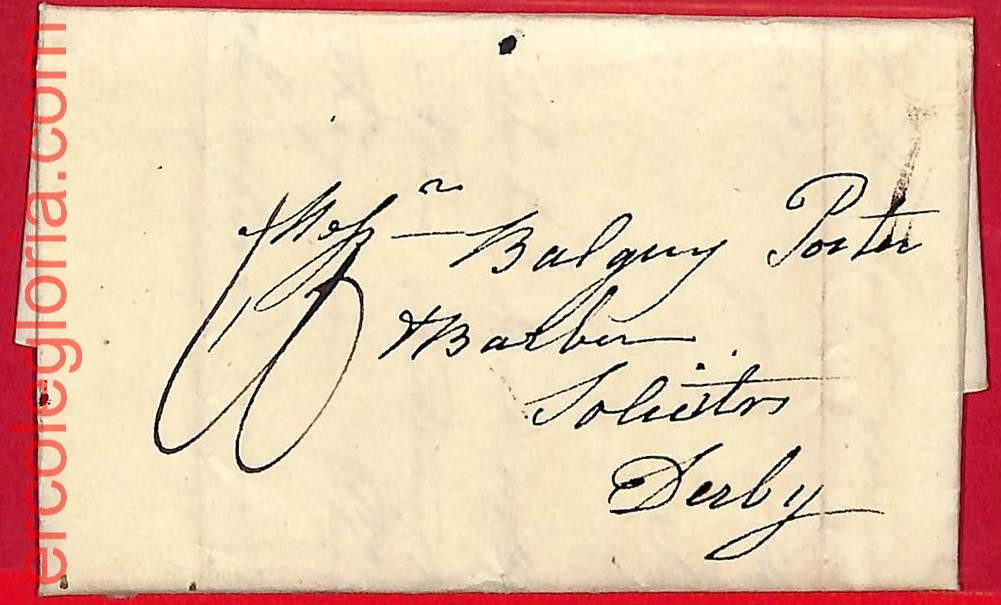 Messrs Balguy Porter
& Barber
Solicitors
Derby
ercolegloria.com